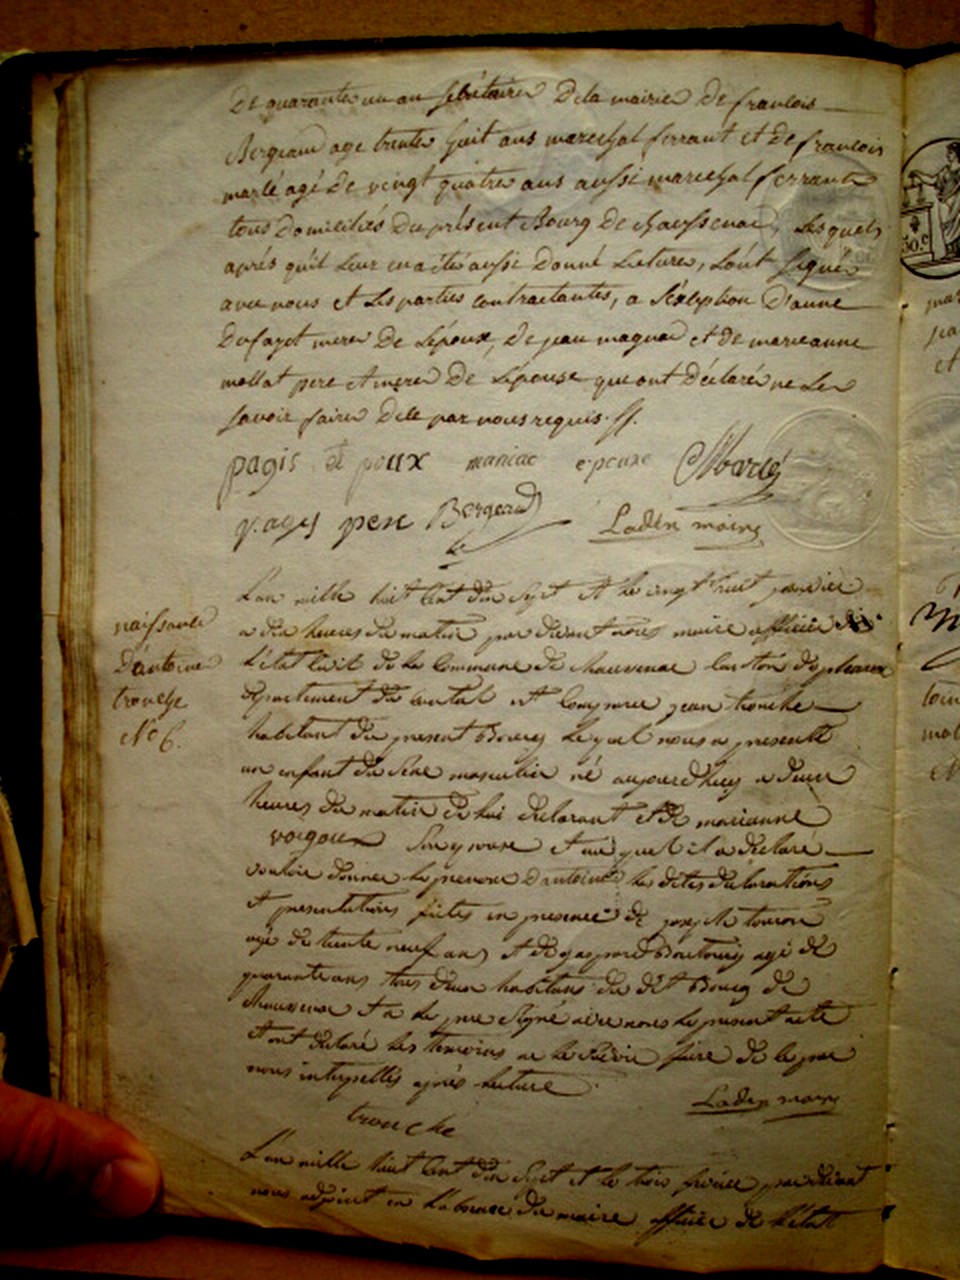 De quarante un an secrétaire De la mairie De francois
Bergeaud age trente huit ans marechal ferrant et De francois
marlé agé De vingt quatre ans aussi marechal ferrant
tous Domiciliés Du présent Bourg De chaussenac, Lesquels
aprés qu'il Leur en a été aussi Donné Lecture, L'ont signé
avec nous et Les parties contractantes, a l'éxception D'anne
Dufayet mere De L'époux, De jean magnac et De marieanne
mollat pere et mere De L'épouse qui ont Déclaré ne Le
savoir faire De ce par nous requis.
pagis époux maniac epouse Marlé
pagis pere Bergeaud Laden maire
L'an mille huit Cent dix Sept et le vingt huit janvier
a dix heures du matin par devant nous maire officier de
L'état Civil de la Commune de chaussenac Canton de pleaux
departement du cantal est Comparu jean trouche
habitant du present Bourg Lequel nous a presenté
un enfant du Sexe masculin né aujourd'huy a deux
heures du matin de lui declarant et de marianne
Son epouse et au quel il a declaré
vouloir donner le prenom D'antoine les dites declarations
et presentations faites en presence de joseph
agé de trente neuf ans et de gaspard agé de
quarante ans tous deux habitans du dit Bourg de
chaussenac et a le pere Signé avec nous le present acte
et ont declaré les temoins ne le Savoir faire de ce par
nous interpellés après lecture
Laden maire
trouche
L'an mille huit Cent dix Sept et le trois fevrier par devant
nous adjoint en L'absence du maire officier de L'état
naissance
D'antoine
trouche
No 6.